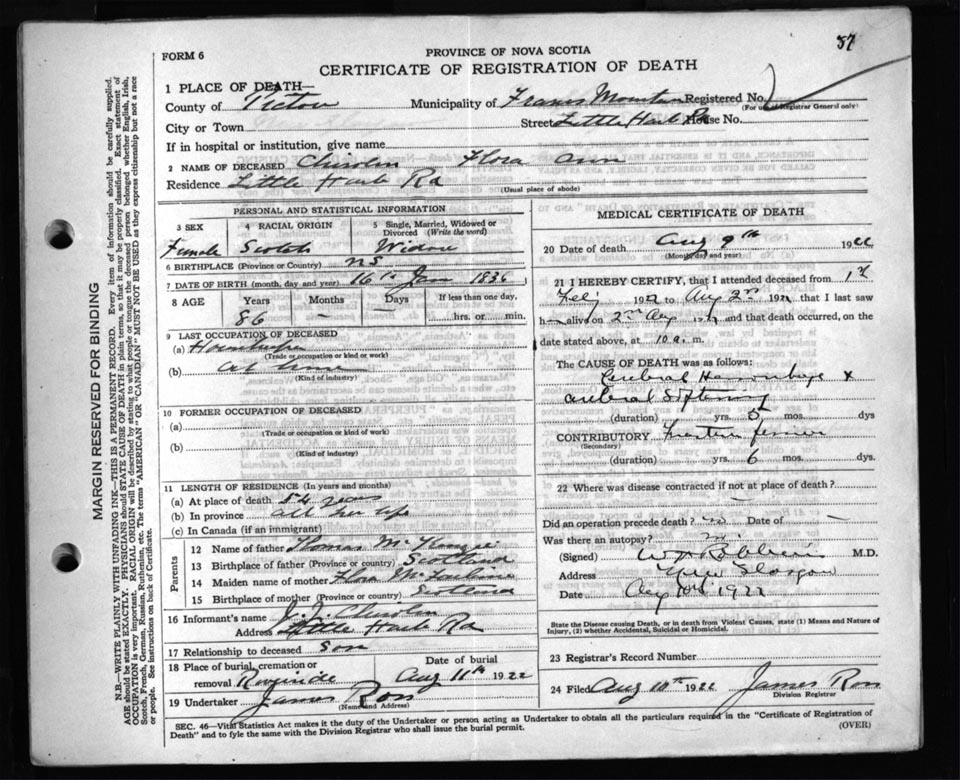 87
FORM 6
PROVINCE OF NOVA SCOTIA
CERTIFICATE OF REGISTRATION OF DEATH
1 PLACE OF DEATH—
County of Pictou Municipality of Frasers Mountain Registered No.
(For use of Registrar General only)
City or Town Street Little Harb Rd House No.
If in hospital or institution, give name
2 NAME OF DECEASED Chisolm Flora Ann
Residence Little Harb Rd
(Usual place of abode)
PERSONAL AND STATISTICAL INFORMATION
3 SEX 4 RACIAL ORIGIN 5 Single, Married, Widowed or Divorced (Write the word)
Female Scotch Widow
6 BIRTHPLACE (Province or Country) NS
7 DATE OF BIRTH (month, day and year) 16th Jan 1836
8 AGE Years Months Days If less than one day,
86 hrs. or min.
9 LAST OCCUPATION OF DECEASED
(a) Housekeeper
(Trade or occupation or kind or work)
(b) At home
(Kind of industry)
10 FORMER OCCUPATION OF DECEASED
(a)
(Trade or occupation or kind of work)
(b)
(Kind of industry)
11 LENGTH OF RESIDENCE (In years and months)
(a) At place of death 54 years
(b) In province all her life
(c) In Canada (if an immigrant)
Parents
12 Name of father Thomas McKenzie
13 Birthplace of father (Province or Country) Scotland
14 Maiden name of mother Flora
15 Birthplace of mother (Province or country) Scotland
16 Informant's name J. J. Chisolm
Address Little Harb Rd
17 Relationship to deceased son
18 Place of burial, cremation or removal Riverside Date of burial Aug 11th 1922
19 Undertaker James Ross
(Name and Address)
MEDICAL CERTIFICATE OF DEATH
20 Date of death Aug 9th 1922
(Month, day and year)
21 I HEREBY CERTIFY, that I attended deceased from 1st
Feby 1922 to Aug 2nd 1922 that I last saw
h alive on 2nd Aug 1922 and that death occurred, on the
date stated above, at 10 a. m.
The CAUSE OF DEATH was as follows:
Cerebral Hemorrhage &
cerebral Softening
(duration) yrs. 5 mos. dys
CONTRIBUTORY
(Secondary)
(duration) yrs. 6 mos. dys
22 Where was disease contracted if not at place of death?
Did an operation precede death? no Date of —
Was there an autopsy? no
(Signed) M.D.
Address New Glasgow
Date Aug 10th 1922
State the Disease causing Death, or in death from Violent Causes, state (1) Means and Nature of Injury, (2) whether Accidental, Suicidal or Homicidal.
23 Registrar's Record Number
24 Filed Aug 10th 1922 James Ross
Division Registrar
SEC. 46—Vital Statistics Act makes it the duty of the Undertaker or person acting as Undertaker to obtain all the particulars required in the "Certificate of Registration of
Death" and to fyle the same with the Division Registrar who shall issue the burial permit. (OVER)
MARGIN RESERVED FOR BINDING
N.B.—WRITE PLAINLY WITH UNFADING INK—THIS IS A PERMANENT RECORD. Every item of information should be carefully supplied.
AGE should be stated EXACTLY. PHYSICIANS should STATE CAUSE OF DEATH in plain terms, so that it may be properly classified. Exact statement of
OCCUPATION is very important. RACIAL ORIGIN will be described by stating to what people or tongue the deceased person belonged whether English, Irish,
Scotch, French, German, Russian, Ruthenian, etc. The terms "AMERICAN" or "CANADIAN" MUST NOT BE USED as they express citizenship but not a race
or people. See instructions on back of Certificate.